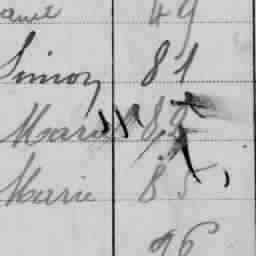 49
Simon 81
Marie 82
Marie 85
96